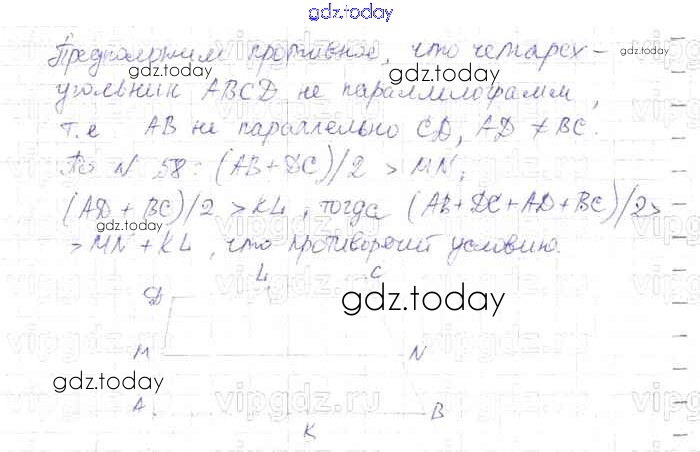 gdz.today
Предположим противное, что четырех-
угольник ABCD не параллилограмм,
т.е AB не параллельно CD, AD ≠ BC.
По N 58: (AB+DC)/2 > MN,
(AD + BC)/2 > KL, тогда (AB+DC+AD+BC)/2 >
> MN + KL, что противоречит условию.
L C
D
gdz.today
M N
gdz.today
A B
K
gdz.today
gdz.today
gdz.today
gdz.today
gdz.today
vipgdz.ru